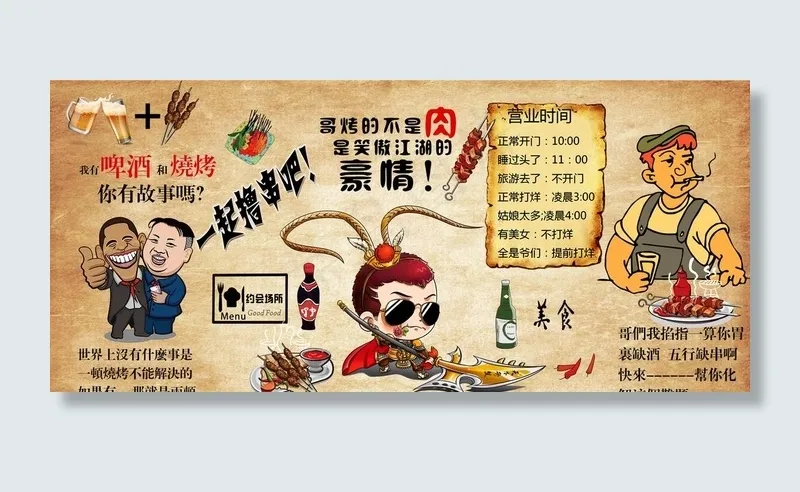 我有啤酒和燒烤
你有故事嗎?
一起撸串吧!
哥烤的不是肉
是笑傲江湖的
豪情!
营业时间
正常开门：10:00
睡过头了：11：00
旅游去了：不开门
正常打烊：凌晨3:00
姑娘太多;凌晨4:00
有美女：不打烊
全是爷们：提前打烊
约会场所
Menu Good Food
美食
世界上沒有什麽事是
一頓燒烤不能解決的
如果有，那就是兩頓
哥們我掐指一算你胃
裏缺酒 五行缺串啊
快來------幫你化